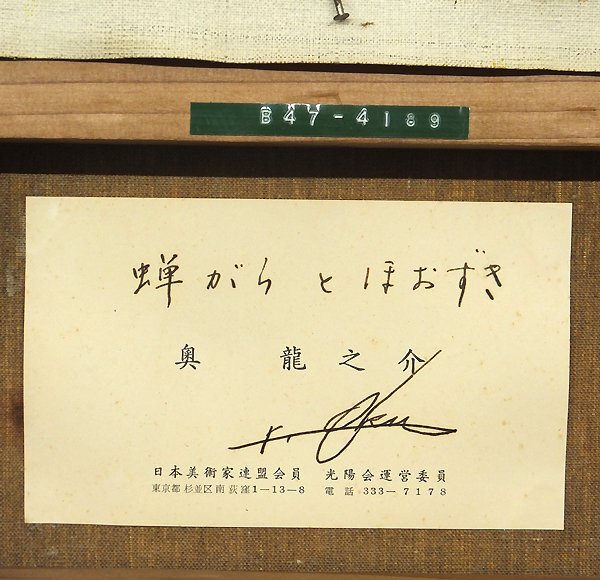 B47-4189
蝉がらとほおずき
奥 龍之介
r. Oku
日本美術家連盟会員 光陽会運営委員
東京都杉並区南荻窪1-13-8 電話 333-7178